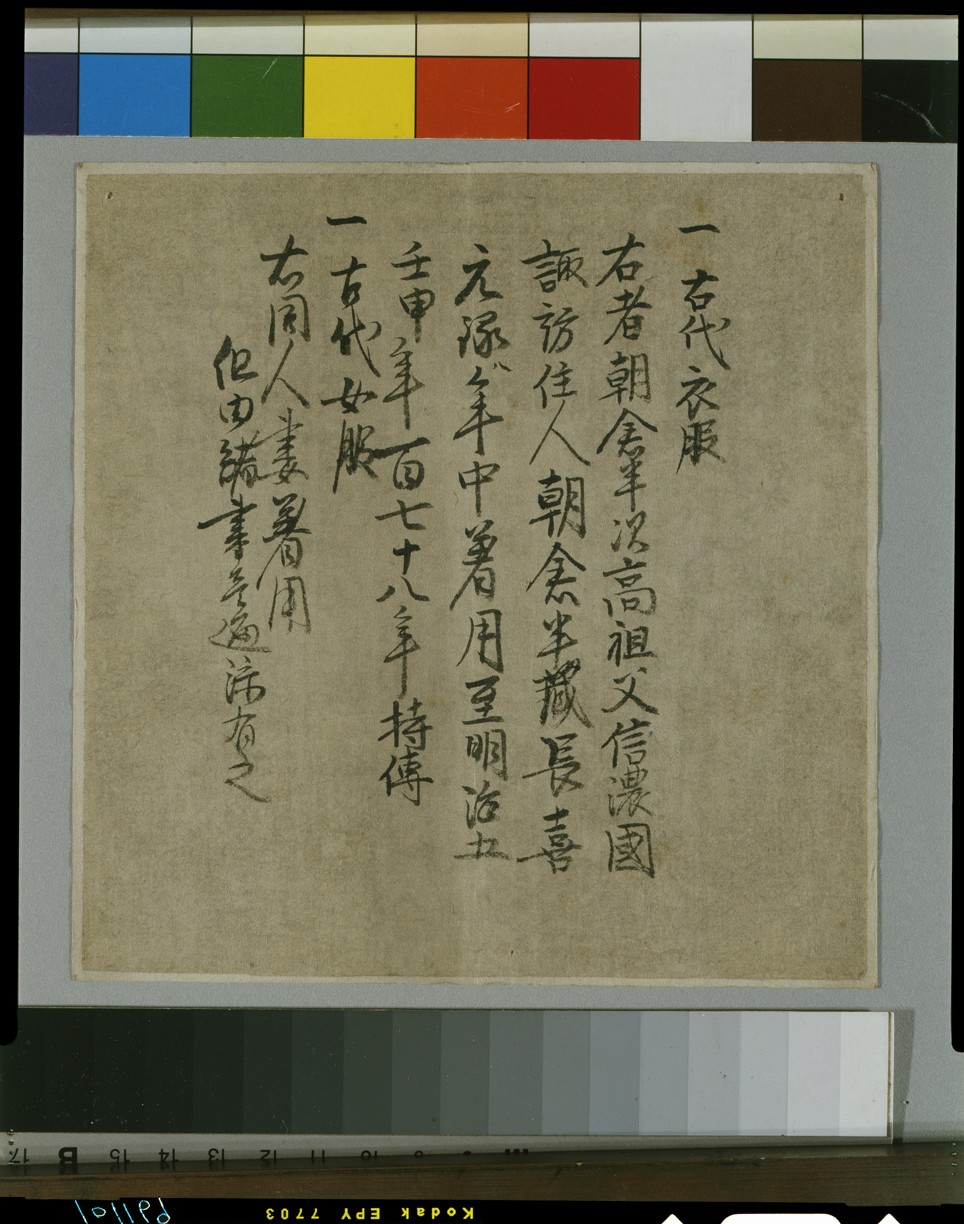 一 古代衣服
右者朝倉半次高祖父信濃國
諏訪住人朝倉半藏長喜
元祿八年中着用至明治五
壬申年百七十八年持傳
一 古代女服
右同人妻着用
但由緒書壱通添有之
10 11 12 13 14 15 B 17
Kodak EPY 7703